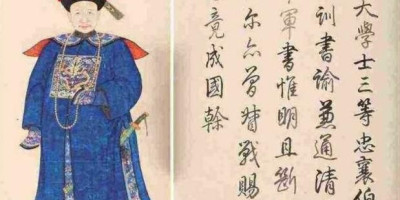 大學士三等忠襄伯
訓書諭兼通清
軍書惟明且斷
尔亦曾督戰賜
竟成國幹